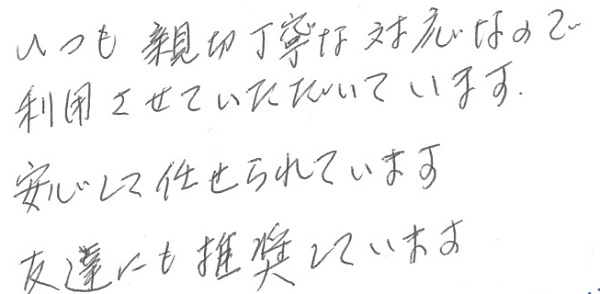 いつも親切丁寧な対応なので
利用させていただいています.
安心して任せられています
友達にも推奨しています